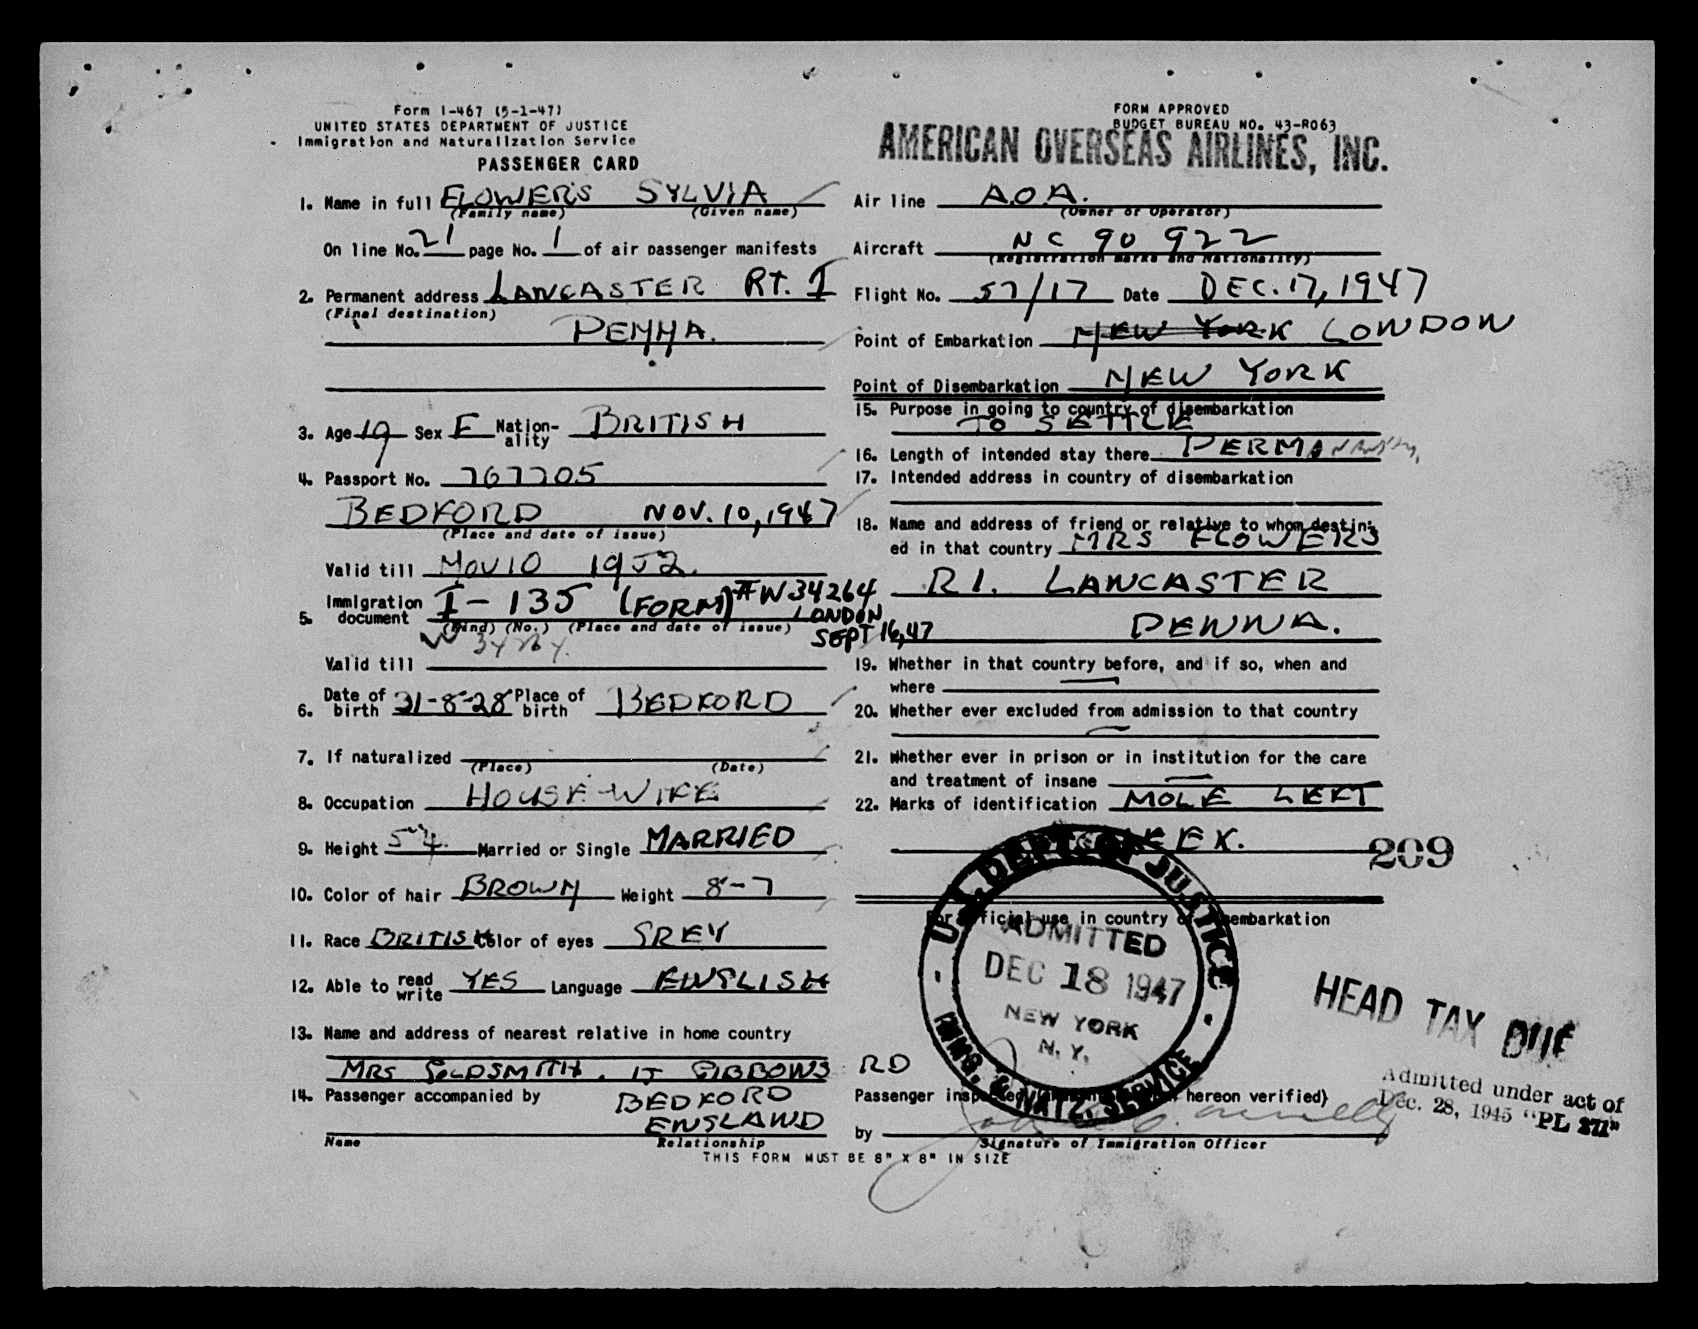 Form I-467 (5-1-47)
UNITED STATES DEPARTMENT OF JUSTICE
Immigration and Naturalization Service
PASSENGER CARD
FORM APPROVED
BUDGET BUREAU NO. 43-R063
AMERICAN OVERSEAS AIRLINES, INC.
1. Name in full FLOWERS SYLVIA
(Family name) (Given name)
On line No. 21 page No. 1 of air passenger manifests
2. Permanent address LANCASTER RT. I
(Final destination)
PENNA.
3. Age 19 Sex F Nationality BRITISH
4. Passport No. 767705
BEDFORD NOV. 10, 1947
(Place and date of issue)
Valid till NOV 10 1952.
5. Immigration document I-135 (FORM) #W34264 LONDON
(Kind) (No.) (Place and date of issue) SEPT 16, 47
Valid till
6. Date of birth 31-8-28 Place of birth BEDFORD
7. If naturalized
(Place) (Date)
8. Occupation HOUSE-WIFE
9. Height 5"4. Married or Single MARRIED
10. Color of hair BROWN Weight 8-7
11. Race BRITISH Color of eyes GREY
12. Able to read write YES Language ENGLISH
13. Name and address of nearest relative in home country
MRS GOLDSMITH. GIBBONS RD
BEDFORD
ENGLAND
14. Passenger accompanied by
Name Relationship
THIS FORM MUST BE 8" X 8" IN SIZE
Air line A.O.A.
(Owner or Operator)
Aircraft NC 90 922
(Registration marks and Nationality)
Flight No. 57/17 Date DEC. 17, 1947
Point of Embarkation NEW YORK LONDON
Point of Disembarkation NEW YORK
15. Purpose in going to country of disembarkation
TO SETTLE
16. Length of intended stay there PERMANANTLY,
17. Intended address in country of disembarkation
18. Name and address of friend or relative to whom destin-
ed in that country MRS FLOWERS
R1. LANCASTER
PENNA.
19. Whether in that country before, and if so, when and
where
20. Whether ever excluded from admission to that country
21. Whether ever in prison or in institution for the care
and treatment of insane
22. Marks of identification MOLE LEFT
CHEEK.
209
For official use in country of disembarkation
U.S. DEPT. OF JUSTICE
ADMITTED
DEC 18 1947
NEW YORK
N. Y.
IMMIG. & NATZ. SERVICE
HEAD TAX DUE
Admitted under act of
Dec. 28, 1945 "PL 271"
Passenger inspected hereon verified)
by
Signature of Immigration Officer